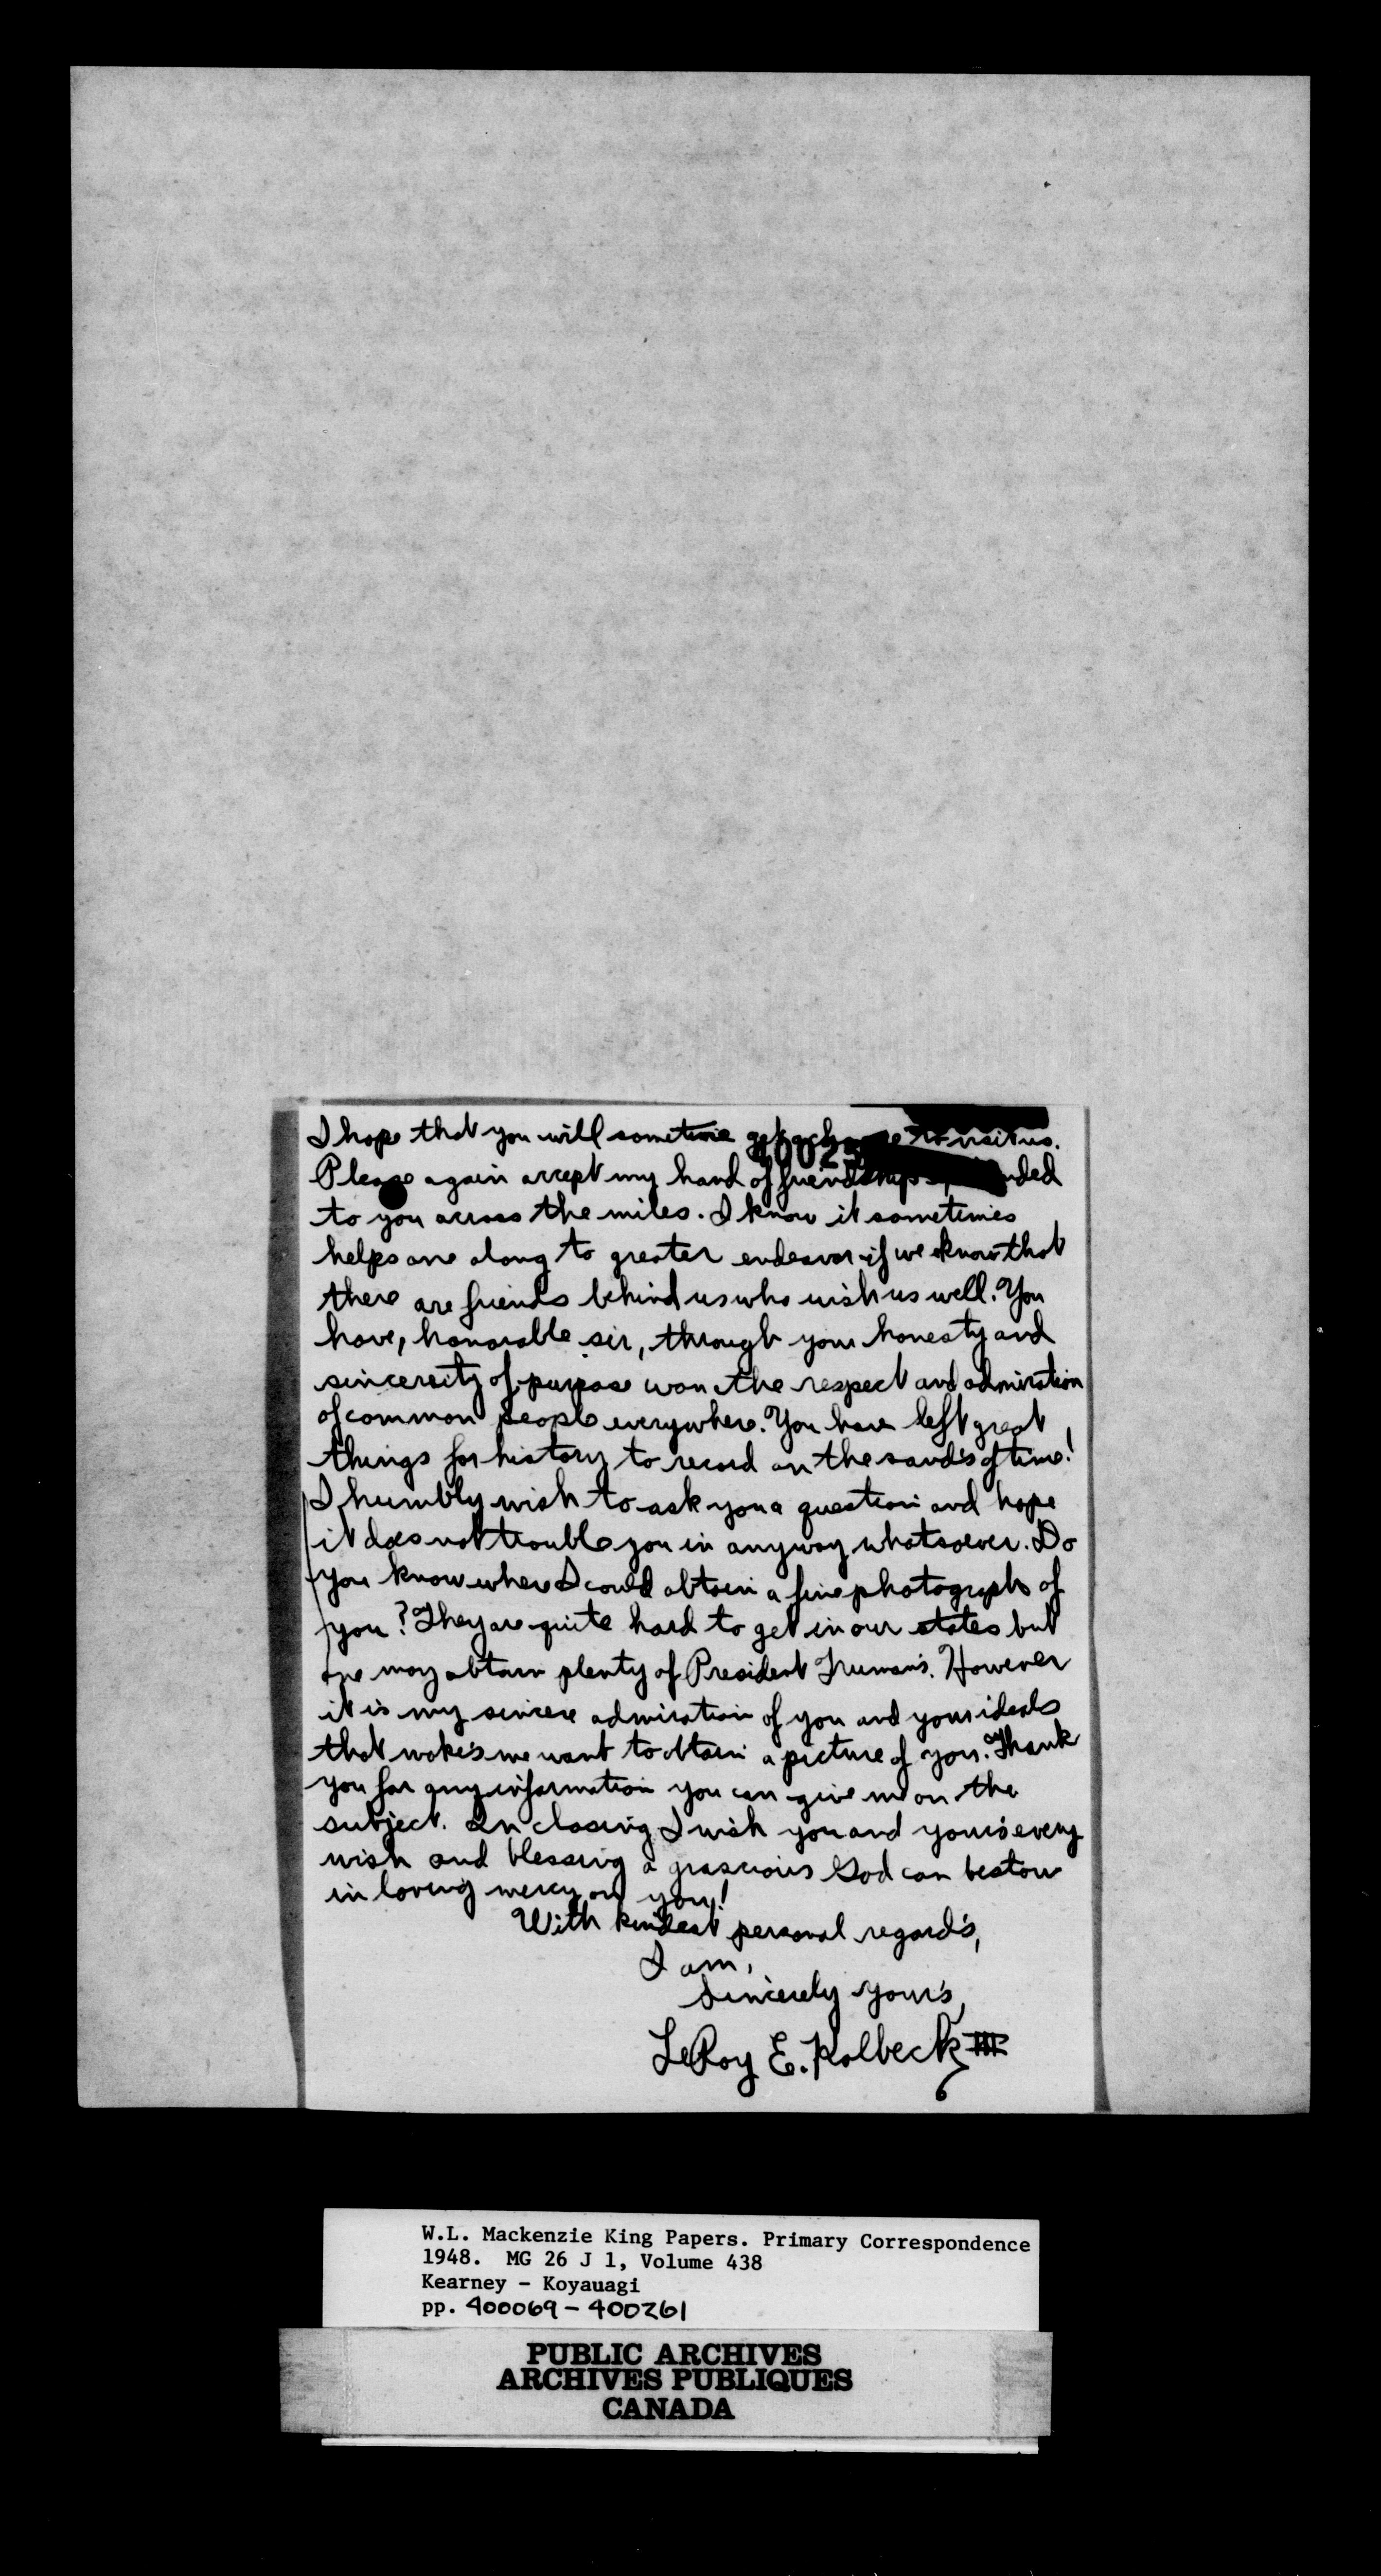 I hope that you will sometime get a chance to visit us.
40025
Please again accept my hand of friendship
to you across the miles. I know it sometimes
helps one along to greater endeavor if we know that
there are friends behind us who wish us well. You
have, honorable sir, through your honesty and
sincereity of purpose won the respect and admiration
of common people everywhere. You have left great
things for history to record on the sand's of time!
I humbly wish to ask you a question and hope
it does not trouble you in anyway whatsoever. Do
you know where I could obtain a fine photograph of
you? They are quite hard to get in our states but
one may obtain plenty of President Truman's. However
it is my sincere admiration of you and your ideals
that make's me want to obtain a picture of you. Thank
you for any information you can give me on the
subject. In closing I wish you and your's every
wish and blessing a grascious God can bestow
in loving mercy on you!
With kindest personal regard's,
I am,
Sincerely your's,
LeRoy E. Kolbeck III
W.L. Mackenzie King Papers. Primary Correspondence
1948. MG 26 J 1, Volume 438
Kearney - Koyauagi
pp. 400069-400261
PUBLIC ARCHIVES
ARCHIVES PUBLIQUES
CANADA